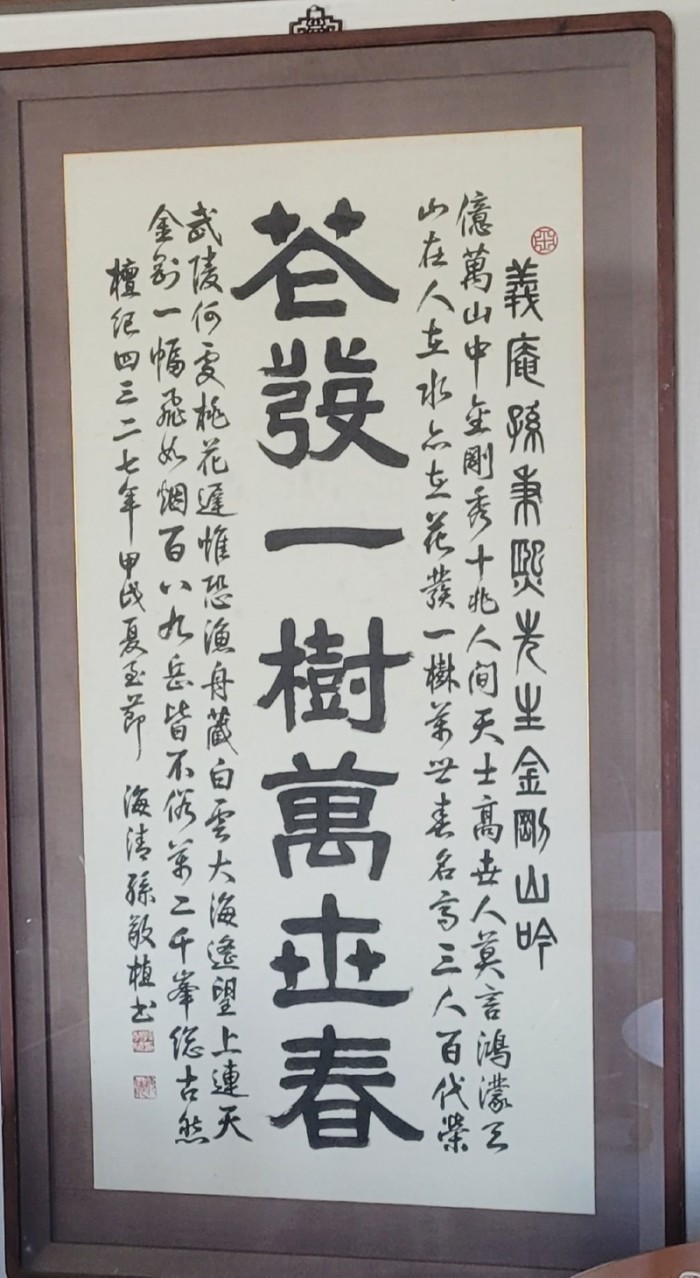 義庵孫秉熙先生金剛山吟
億萬山中金剛秀十兆人间天士高世人莫言鴻濛了
山在人在水亦在花發一樹萬世春名高三人百代榮
花發一樹萬世春
武陵何處桃花遲惟恐漁舟藏白雲大海遙望上連天
金剛一幅飛如烟百八九岳皆不俗萬二千峯總古然
檀紀四三二七年甲戌夏至節 海清孫敬植书